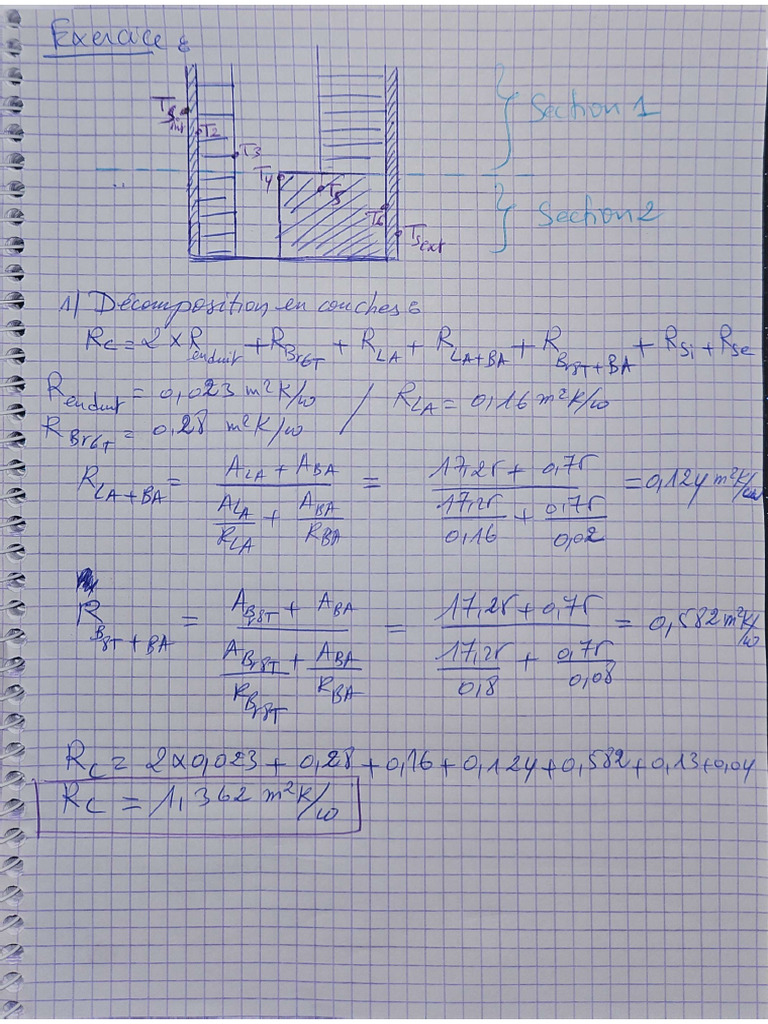 Exercice :
Section 1
Ts int
T2
T3
T4
T5
T6
Ts ext
Section 2
1/ Décomposition en couches :
Rc = 2 × R enduit + R Br6T + R LA + R LA+BA + R Br8T+BA + R Si + R Se
R enduit = 0,023 m²K/w / R LA = 0,16 m²K/w
R Br6T = 0,28 m²K/w
R LA+BA = (A LA + A BA) / (A LA / R LA + A BA / R BA) = (17,25 + 0,75) / (17,25 / 0,16 + 0,75 / 0,02) = 0,124 m²K/w
R B8T+BA = (A Br8T + A BA) / (A Br8T / R Br8T + A BA / R BA) = (17,25 + 0,75) / (17,25 / 0,8 + 0,75 / 0,08) = 0,582 m²K/w
Rc = 2×0,023 + 0,28 + 0,16 + 0,124 + 0,582 + 0,13 + 0,04
Rc = 1,362 m²K/w